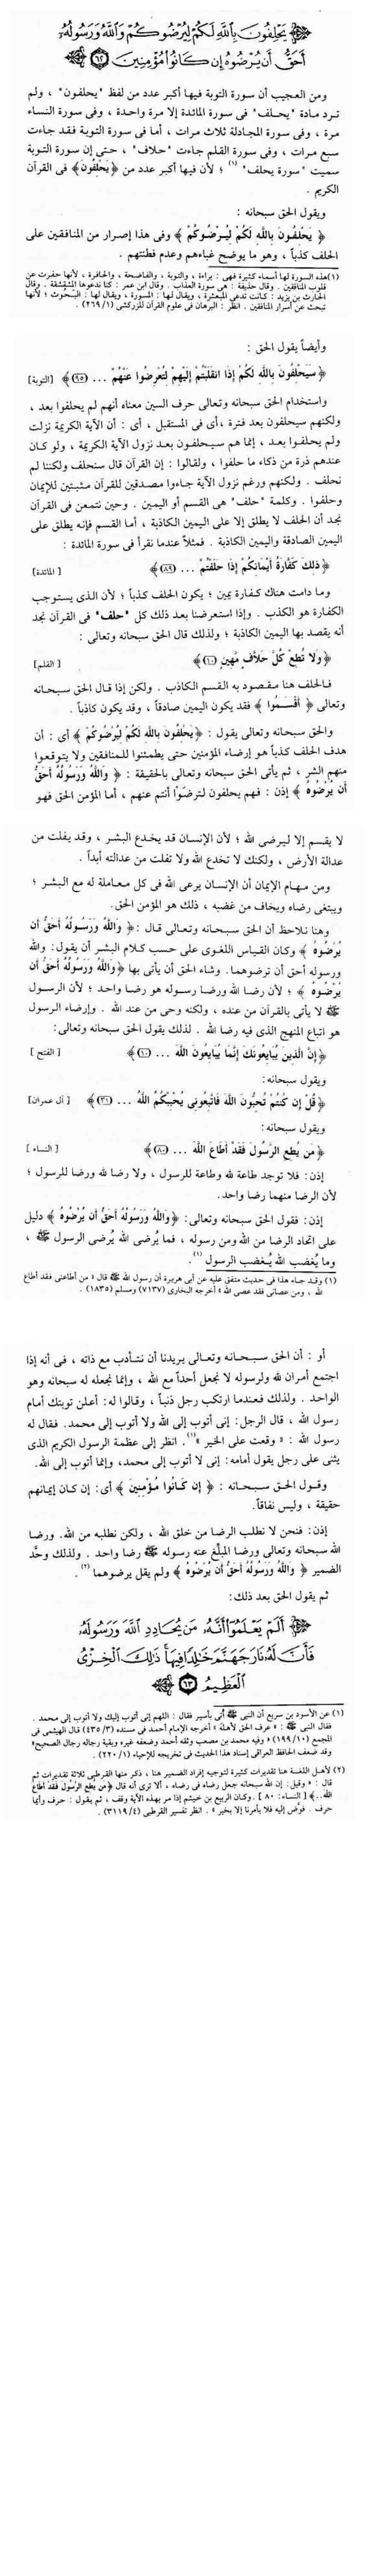 يَحْلِفُونَ بِاللَّهِ لَكُمْ لِيُرْضُوكُمْ وَاللَّهُ وَرَسُولُهُ
أَحَقُّ أَن يُرْضُوهُ إِن كَانُوا مُؤْمِنِينَ ٦٢
ومن العجيب أن سورة التوبة فيها أكبر عدد من لفظ "يحلفون" ، ولم
ترد مادة "يحلف" فى سورة المائدة إلا مرة واحدة ، وفى سورة النساء
مرة ، وفى سورة المجادلة ثلاث مرات ، أما فى سورة التوبة فقد جاءت
سبع مرات ، وفى سورة القلم جاءت "حلاف" ، حتى إن سورة التوبة
سميت "سورة يحلف" (١) ؛ لأن فيها أكبر عدد من ﴿يَحْلِفُونَ﴾ فى القرآن
الكريم .
ويقول الحق سبحانه :
﴿ يَحْلِفُونَ بِاللَّهِ لَكُمْ لِيُرْضُوكُمْ ﴾ وفى هذا إصرار من المنافقين على
الحلف كذباً ، وهو ما يوضح غباءهم وعدم فطنتهم .
(١) هذه السورة لها أسماء كثيرة فهى : براءة ، والتوبة ، والفاضحة ، والحافرة ، لأنها حفرت عن
قلوب المنافقين . وقال حذيفة : هى سورة العذاب . وقال ابن عمر : كنا ندعوها المشقشقة . وقال
الحارث بن يزيد : كانت تدعى المبعثرة ، ويقال لها : المسورة ، ويقال لها : البحوث ؛ لأنها
تبحث عن أسرار المنافقين . انظر : البرهان فى علوم القرآن للزركشى (٢٦٩/١) .
وأيضاً يقول الحق :
﴿ سَيَحْلِفُونَ بِاللَّهِ لَكُمْ إِذَا انقَلَبْتُمْ إِلَيْهِمْ لِتُعْرِضُوا عَنْهُمْ ... (٩٥) ﴾ [التوبة]
واستخدام الحق سبحانه وتعالى حرف السين معناه أنهم لم يحلفوا بعد ،
ولكنهم سيحلفون بعد فترة ، أى فى المستقبل ، أى : أن الآية الكريمة نزلت
ولم يحلفوا بعد ، إنما هم سيحلفون بعد نزول الآية الكريمة ، ولو كان
عندهم ذرة من ذكاء ما حلفوا ، ولقالوا : إن القرآن قال سنحلف ولكننا لم
نحلف . ولكنهم ورغم نزول الآية جاءوا مصدقين للقرآن مثبتين للإيمان
وحلفوا . وكلمة "حلف" هى القسم أو اليمين . وحين نتمعن فى القرآن
نجد أن الحلف لا يطلق إلا على اليمين الكاذبة ، أما القسم فإنه يطلق على
اليمين الصادقة واليمين الكاذبة . فمثلاً عندما نقرأ فى سورة المائدة :
﴿ ذَلِكَ كَفَّارَةُ أَيْمَانِكُمْ إِذَا حَلَفْتُمْ ... (٨٩) ﴾ [ المائدة]
وما دامت هناك كفارة يمين ؛ يكون الحلف كذباً ؛ لأن الذى يستوجب
الكفارة هو الكذب . وإذا استعرضنا بعد ذلك كل "حلف" فى القرآن نجد
أنه يقصد بها اليمين الكاذبة ؛ ولذلك قال الحق سبحانه وتعالى :
﴿ وَلا تُطِعْ كُلَّ حَلاَّفٍ مَّهِينٍ (١٠) ﴾ [ القلم]
فالحلف هنا مقصود به القسم الكاذب . ولكن إذا قال الحق سبحانه
وتعالى ﴿ أَقْسَمُوا ﴾ فقد يكون اليمين صادقاً ، وقد يكون كاذباً .
والحق سبحانه وتعالى يقول : ﴿ يَحْلِفُونَ بِاللَّهِ لَكُمْ لِيُرْضُوكُمْ ﴾ أى : أن
هدف الحلف كذباً هو إرضاء المؤمنين حتى يطمئنوا للمنافقين ولا يتوقعوا
منهم الشر ، ثم يأتى الحق سبحانه وتعالى بالحقيقة : ﴿ وَاللَّهُ وَرَسُولُهُ أَحَقُّ
أَن يُرْضُوهُ ﴾ إذن : فهم يحلفون لترضوا أنتم عنهم ، أما المؤمن الحق فهو
لا يقسم إلا ليرضى الله ؛ لأن الإنسان قد يخدع البشر ، وقد يفلت من
عدالة الأرض ، ولكنك لا تخدع الله ولا تفلت من عدالته أبداً .
ومن مهام الإيمان أن الإنسان يرعى الله فى كل معاملة له مع البشر ؛
ويبتغى رضاه ويخاف من غضبه ، ذلك هو المؤمن الحق .
وهنا نلاحظ أن الحق سبحانه وتعالى قال : ﴿ وَاللَّهُ وَرَسُولُهُ أَحَقُّ أَن
يُرْضُوهُ ﴾ وكان القياس اللغوى على حسب كلام البشر أن يقول : والله
ورسوله أحق أن ترضوهما . وشاء الحق أن يأتى بها ﴿ وَاللَّهُ وَرَسُولُهُ أَحَقُّ أَن
يُرْضُوهُ ﴾ ؛ لأن رضا الله ورضا رسوله هو رضا واحد ؛ لأن الرسول
ﷺ لا يأتى بالقرآن من عنده ، ولكنه وحى من عند الله . وإرضاء الرسول
هو اتباع المنهج الذى فيه رضا الله . لذلك يقول الحق سبحانه وتعالى :
﴿ إِنَّ الَّذِينَ يُبَايِعُونَكَ إِنَّمَا يُبَايِعُونَ اللَّهَ ... (١٠) ﴾ [ الفتح ]
ويقول سبحانه :
﴿ قُلْ إِن كُنتُمْ تُحِبُّونَ اللَّهَ فَاتَّبِعُونِي يُحْبِبْكُمُ اللَّهُ ... (٣١) ﴾ [ آل عمران]
ويقول سبحانه :
﴿ مَن يُطِعِ الرَّسُولَ فَقَدْ أَطَاعَ اللَّهَ ... (٨٠) ﴾ [ النساء ]
إذن : فلا توجد طاعة لله وطاعة للرسول ، ولا رضا لله ورضا للرسول ؛
لأن الرضا منهما رضا واحد .
إذن : فقول الحق سبحانه وتعالى : ﴿ وَاللَّهُ وَرَسُولُهُ أَحَقُّ أَن يُرْضُوهُ ﴾ دليل
على اتحاد الرضا من الله ومن رسوله ، فما يُرضى الله يُرضى الرسول ﷺ ،
وما يُغضب الله يُغضب الرسول (١) .
(١) وقد جاء هذا فى حديث متفق عليه عن أبى هريرة أن رسول الله ﷺ قال « من أطاعنى فقد أطاع
الله ، ومن عصانى فقد عصى الله » أخرجه البخارى (٧١٣٧) ومسلم (١٨٣٥) .
أو : أن الحق سبحانه وتعالى يريدنا أن نتأدب مع ذاته ، فى أنه إذا
اجتمع أمران لله ولرسوله لا نجعل أحداً مع الله ، وإنما نجعله له سبحانه وهو
الواحد . ولذلك فعندما ارتكب رجل ذنباً ، وقالوا له : أعلن توبتك أمام
رسول الله ، قال الرجل : إنى أتوب إلى الله ولا أتوب إلى محمد . فقال له
رسول الله : « وقعت على الخير » (١) . انظر إلى عظمة الرسول الكريم الذى
يثنى على رجل يقول أمامه : إنى لا أتوب إلى محمد ، وإنما أتوب إلى الله .
وقول الحق سبحانه : ﴿ إِن كَانُوا مُؤْمِنِينَ ﴾ أى : إن كان إيمانهم
حقيقة ، وليس نفاقاً .
إذن : فنحن لا نطلب الرضا من خلق الله ، ولكن نطلبه من الله . ورضا
الله سبحانه وتعالى ورضا المبلِّغ عنه رسوله ﷺ رضا واحد . ولذلك وحَّد
الضمير ﴿ وَاللَّهُ وَرَسُولُهُ أَحَقُّ أَن يُرْضُوهُ ﴾ ولم يقل يرضوهما (٢) .
ثم يقول الحق بعد ذلك :
أَلَمْ يَعْلَمُوا أَنَّهُ مَن يُحَادِدِ اللَّهَ وَرَسُولَهُ
فَأَنَّ لَهُ نَارَ جَهَنَّمَ خَالِدًا فِيهَا ذَلِكَ الْخِزْيُ
الْعَظِيمُ ٦٣
(١) عن الأسود بن سريع أن النبى ﷺ أتى بأسير فقال : اللهم إنى أتوب إليك ولا أتوب إلى محمد .
فقال النبى ﷺ : « عرف الحق لأهله » أخرجه الإمام أحمد فى مسنده (٤٣٥/٣) قال الهيثمى فى
المجمع (١٩٩/١٠) « وفيه محمد بن مصعب وثقه أحمد وضعفه غيره وبقية رجاله رجال الصحيح»
وقد ضعف الحافظ العراقى إسناد هذا الحديث فى تخريجه للإحياء (٢٢٠/١) .
(٢) لأهل اللغة هنا تقديرات كثيرة لتوجيه إفراد الضمير هنا ، ذكر منها القرطبى ثلاثة تقديرات ثم
قال : « وقيل : إن الله سبحانه جعل رضاه فى رضاه ، ألا ترى أنه قال ﴿ مَن يُطِعِ الرَّسُولَ فَقَدْ أَطَاعَ
اللَّهَ ..﴾ [ النساء : ٨٠ ] . وكان الربيع بن خيثم إذا مر بهذه الآية وقف ، ثم يقول : حرف وأيما
حرف . فوَّض إليه فلا يأمرنا إلا بخير » . انظر تفسير القرطبى (٣١١٩/٤) .